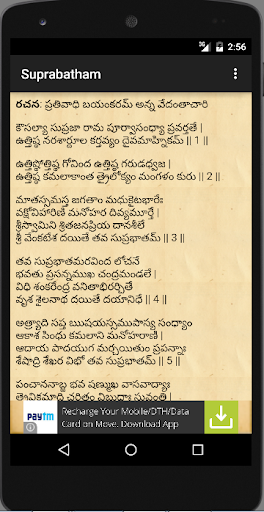 2:56
Suprabatham
రచన: ప్రతివాధి బయంకరమ్ అన్న వేదంతాచారి
కౌసల్యా సుప్రజా రామ పూర్వాసంధ్యా ప్రవర్తతే |
ఉత్తిష్ఠ నరశార్దూల కర్తవ్యం దైవమాహ్నికమ్ || 1 ||
ఉత్తిష్ఠోత్తిష్ఠ గోవింద ఉత్తిష్ఠ గరుడధ్వజ |
ఉత్తిష్ఠ కమలాకాంత త్రైలోక్యం మంగళం కురు || 2 ||
మాతస్సమస్త జగతాం మధుకైటభారేః
వక్షోవిహారిణి మనోహర దివ్యమూర్తే |
శ్రీస్వామిని శ్రితజనప్రియ దానశీలే
శ్రీ వేంకటేశ దయితే తవ సుప్రభాతమ్ || 3 ||
తవ సుప్రభాతమరవింద లోచనే
భవతు ప్రసన్నముఖ చంద్రమండలే |
విధి శంకరేంద్ర వనితాభిరర్చితే
వృశ శైలనాథ దయితే దయానిధే || 4 ||
అత్ర్యాది సప్త ఋషయస్సముపాస్య సంధ్యాం
ఆకాశ సింధు కమలాని మనోహరాణి |
ఆదాయ పాదయుగ మర్చయితుం ప్రపన్నాః
శేషాద్రి శేఖర విభో తవ సుప్రభాతమ్ || 5 ||
పంచాననాబ్జ భవ షణ్ముఖ వాసవాద్యాః
త్రైవిక్రమాది చరితం విబుధాః స్తువంతి |
Paytm
Recharge Your Mobile/DTH/Data
Card on Move. Download App